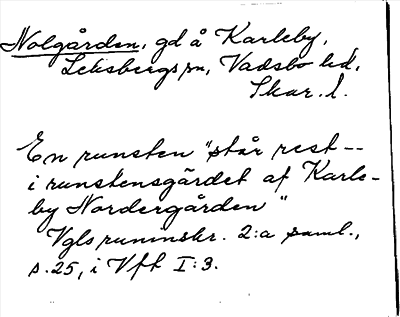 Nolgården, gd å Karleby,
Leksbergs sn, Vadsbo hd,
Skar. l.
En runsten "står rest --
i runstensgärdet af Karle-
by Nordergården"
Vgls runinskr. 2:a saml.,
s. 25, i Vft I:3.